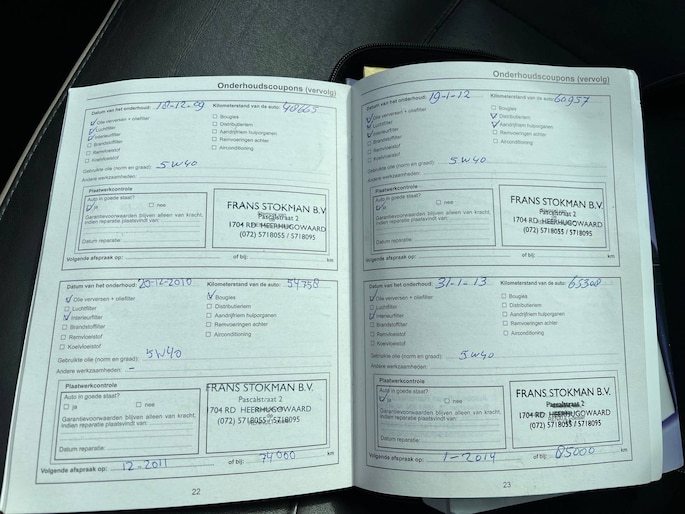 Onderhoudscoupons (vervolg)
Datum van het onderhoud: 18-12-09 Kilometerstand van de auto: 48665
Olie verversen + oliefilter
Luchtfilter
Interieurfilter
Brandstoffilter
Remvloeistof
Koelvloeistof
Bougies
Distributieriem
Aandrijfriem hulporganen
Remvoeringen achter
Airconditioning
Gebruikte olie (norm en graad): 5W40
Andere werkzaamheden:
Plaatwerkcontrole
Auto in goede staat?
ja nee
Garantievoorwaarden blijven alleen van kracht,
indien reparatie plaatsvindt van:
Datum reparatie:
FRANS STOKMAN B.V.
Pascalstraat 2
1704 RD HEERHUGOWAARD
(072) 5718055 / 5718095
Volgende afspraak op: of bij: km
Datum van het onderhoud: 20-12-2010 Kilometerstand van de auto: 54758
Olie verversen + oliefilter
Luchtfilter
Interieurfilter
Brandstoffilter
Remvloeistof
Koelvloeistof
Bougies
Distributieriem
Aandrijfriem hulporganen
Remvoeringen achter
Airconditioning
Gebruikte olie (norm en graad): 5W40
Andere werkzaamheden: -
Plaatwerkcontrole
Auto in goede staat?
ja nee
Garantievoorwaarden blijven alleen van kracht,
indien reparatie plaatsvindt van:
Datum reparatie:
FRANS STOKMAN B.V.
Pascalstraat 2
1704 RD HEERHUGOWAARD
(072) 5718055 / 5718095
Volgende afspraak op: 12-2011 of bij: 74000 km
22
Onderhoudscoupons (vervolg)
Datum van het onderhoud: 19-1-12 Kilometerstand van de auto: 60957
Olie verversen + oliefilter
Luchtfilter
Interieurfilter
Brandstoffilter
Remvloeistof
Koelvloeistof
Bougies
Distributieriem
Aandrijfriem hulporganen
Remvoeringen achter
Airconditioning
Gebruikte olie (norm en graad): 5W40
Andere werkzaamheden:
Plaatwerkcontrole
Auto in goede staat?
ja nee
Garantievoorwaarden blijven alleen van kracht,
indien reparatie plaatsvindt van:
Datum reparatie:
FRANS STOKMAN B.V.
Pascalstraat 2
1704 RD HEERHUGOWAARD
(072) 5718055 / 5718095
Volgende afspraak op: of bij: km
Datum van het onderhoud: 31-1-13 Kilometerstand van de auto: 65308
Olie verversen + oliefilter
Luchtfilter
Interieurfilter
Brandstoffilter
Remvloeistof
Koelvloeistof
Bougies
Distributieriem
Aandrijfriem hulporganen
Remvoeringen achter
Airconditioning
Gebruikte olie (norm en graad): 5W40
Andere werkzaamheden:
Plaatwerkcontrole
Auto in goede staat?
ja nee
Garantievoorwaarden blijven alleen van kracht,
indien reparatie plaatsvindt van:
Datum reparatie:
FRANS STOKMAN B.V.
Pascalstraat 2
1704 RD HEERHUGOWAARD
(072) 5718055 / 5718095
Volgende afspraak op: 1-2014 of bij: 85000 km
23